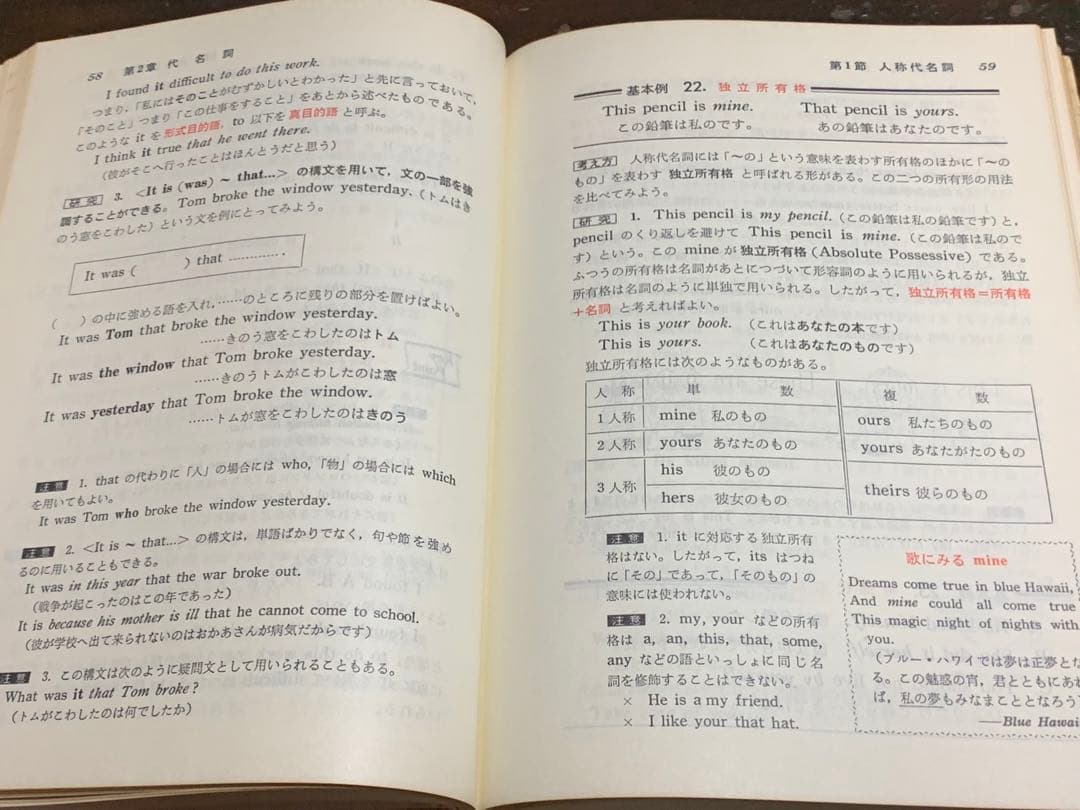 58 第2章 代 名 詞
I found it difficult to do this work.
つまり,「私にはそのことがむずかしいとわかった」と先に言っておいて,
「そのこと」つまり「この仕事をすること」をあとから述べたものである。
このような it を 形式目的語, to 以下を 真目的語 と呼ぶ。
I think it true that he went there.
(彼がそこへ行ったことはほんとうだと思う)
研究 3. <It is (was) ~ that...> の構文を用いて, 文の一部を強
調することができる。Tom broke the window yesterday. (トムはき
のう窓をこわした) という文を例にとってみよう。
It was ( ) that ………….
( ) の中に強める語を入れ, ……のところに残りの部分を置けばよい。
It was Tom that broke the window yesterday.
……きのう窓をこわしたのはトム
It was the window that Tom broke yesterday.
……きのうトムがこわしたのは窓
It was yesterday that Tom broke the window.
……トムが窓をこわしたのはきのう
注意 1. that の代わりに「人」の場合には who,「物」の場合には which
を用いてもよい。
It was Tom who broke the window yesterday.
注意 2. <It is ~ that...> の構文は, 単語ばかりでなく, 句や節を強め
るのに用いることもできる。
It was in this year that the war broke out.
(戦争が起こったのはこの年であった)
It is because his mother is ill that he cannot come to school.
(彼が学校へ出て来られないのはおかあさんが病気だからです)
注意 3. この構文は次のように疑問文として用いられることもある。
What was it that Tom broke?
(トムがこわしたのは何でしたか)
第1節 人称代名詞 59
基本例 22. 独立所有格
This pencil is mine. That pencil is yours.
この鉛筆は私のです。 あの鉛筆はあなたのです。
考え方 人称代名詞には「〜の」という意味を表わす所有格のほかに「〜の
もの」を表わす 独立所有格 と呼ばれる形がある。この二つの所有形の用法
を比べてみよう。
研究 1. This pencil is my pencil. (この鉛筆は私の鉛筆です) と,
pencil のくり返しを避けて This pencil is mine. (この鉛筆は私ので
す) という。この mine が 独立所有格 (Absolute Possessive) である。
ふつうの所有格は名詞があとにつづいて形容詞のように用いられるが, 独立
所有格は名詞のように単独で用いられる。したがって, 独立所有格=所有格
+名詞 と考えればよい。
This is your book. (これはあなたの本です)
This is yours. (これはあなたのものです)
独立所有格には次のようなものがある。
人 称 単 数 複 数
1人称 mine 私のもの ours 私たちのもの
2人称 yours あなたのもの yours あなたがたのもの
3人称 his 彼のもの theirs 彼らのもの
hers 彼女のもの
注意 1. it に対応する独立所有
格はない。したがって, its はつね
に「その」であって,「そのもの」の
意味には使われない。
注意 2. my, your などの所有
格は a, an, this, that, some,
any などの語といっしょに同じ名
詞を修飾することはできない。
× He is a my friend.
× I like your that hat.
歌にみる mine
Dreams come true in blue Hawaii,
And mine could all come true
This magic night of nights with
you.
(ブルー・ハワイでは夢は正夢とな
る。この魅惑の宵, 君とともにあれ
ば, 私の夢もみなまこととなろう)
—Blue Hawaii